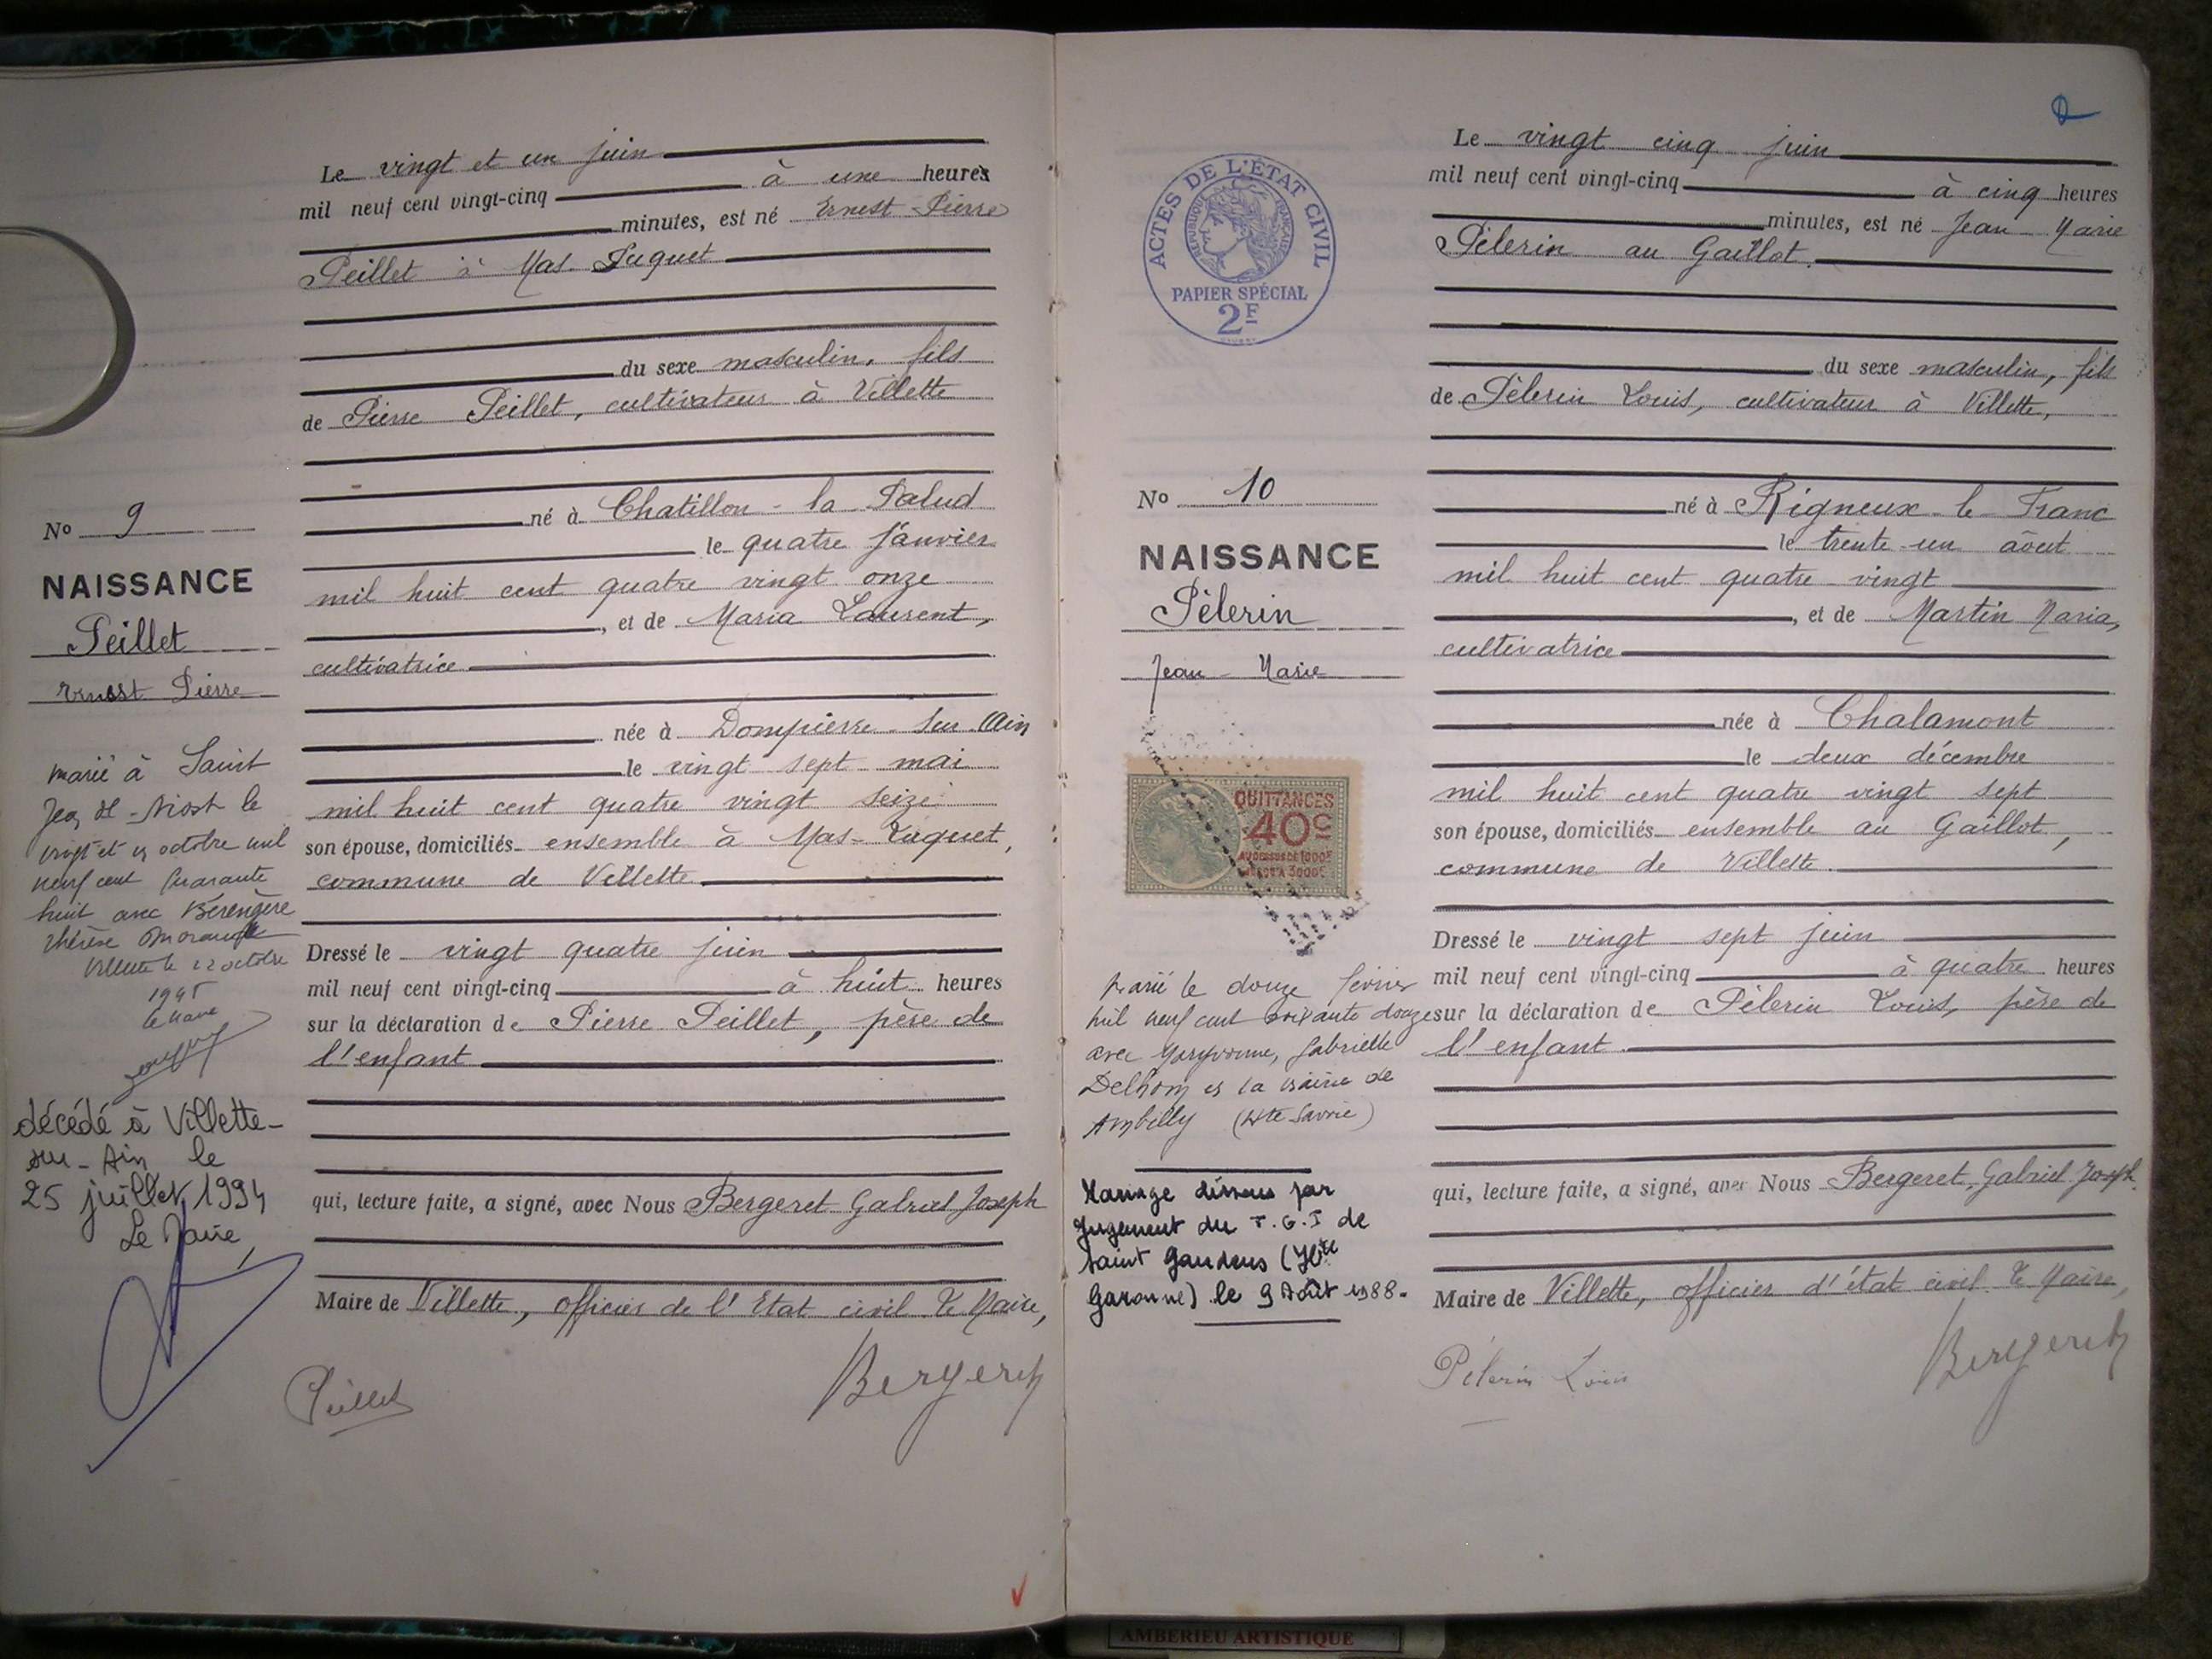 Le vingt et un juin
mil neuf cent vingt-cinq à une heures
minutes, est né Ernest Pierre
Peillet à Mas-Tuquet
du sexe masculin, fils
de Pierre Peillet, cultivateur à Villette
né à Chatillon-la Palud
le quatre Janvier
mil huit cent quatre vingt onze
, et de Maria Laurent,
cultivatrice
née à Dompierre sur Ain
le vingt sept mai
mil huit cent quatre vingt seize
son épouse, domiciliés ensemble à
commune de Villette
Dressé le vingt quatre juin
mil neuf cent vingt-cinq à huit heures
sur la déclaration de Pierre Peillet, père de
l'enfant
qui, lecture faite, a signé, avec Nous Bergeret Gabriel Joseph
Maire de Villette, officier de l'Etat civil. Le Maire,
Peillet
Bergeret
No 9
NAISSANCE
Peillet
Ernest Pierre
marié à Saint
Jean de Niost le
vingt et un octobre mil
neuf cent quarante
huit avec Bérengère
Thérèse
Villette le 22 octobre
le Maire
décédé à Villette-
sur-Ain le
25 juillet 1994
Le Maire,
ACTES DE L'ÉTAT CIVIL
RÉPUBLIQUE FRANÇAISE
PAPIER SPÉCIAL
2F
No 10
NAISSANCE
Pèlerin
Jean-Marie
QUITTANCES
40c
AU DESSUS DE 1000F
JUSQU'A 3000F
Marié le douze février
mil neuf cent soixante douze
avec Maryvonne, Gabrielle
Delhom en la mairie de
Ambilly (Hte Savoie)
Mariage dissous par
Jugement du T.G.I de
Saint Gaudens (Hte
Garonne) le 9 Août 1988.
Le vingt cinq juin
mil neuf cent vingt-cinq à cinq heures
minutes, est né Jean Marie
Pèlerin au Gaillot.
du sexe masculin, fils
de Pèlerin Louis, cultivateur à Villette,
né à Rigneux-le-Franc
le trente-un août
mil huit cent quatre-vingt
, et de Martin Maria,
cultivatrice
née à Chalamont
le deux décembre
mil huit cent quatre vingt sept
son épouse, domiciliés ensemble au Gaillot,
commune de Villette
Dressé le vingt sept juin
mil neuf cent vingt-cinq à quatre heures
sur la déclaration de Pèlerin Louis, père de
l'enfant.
qui, lecture faite, a signé, avec Nous Bergeret, Gabriel Joseph.
Maire de Villette, officier d'état civil. Le Maire,
Pèlerin Louis
Bergeret
AMBERIEU ARTISTIQUE